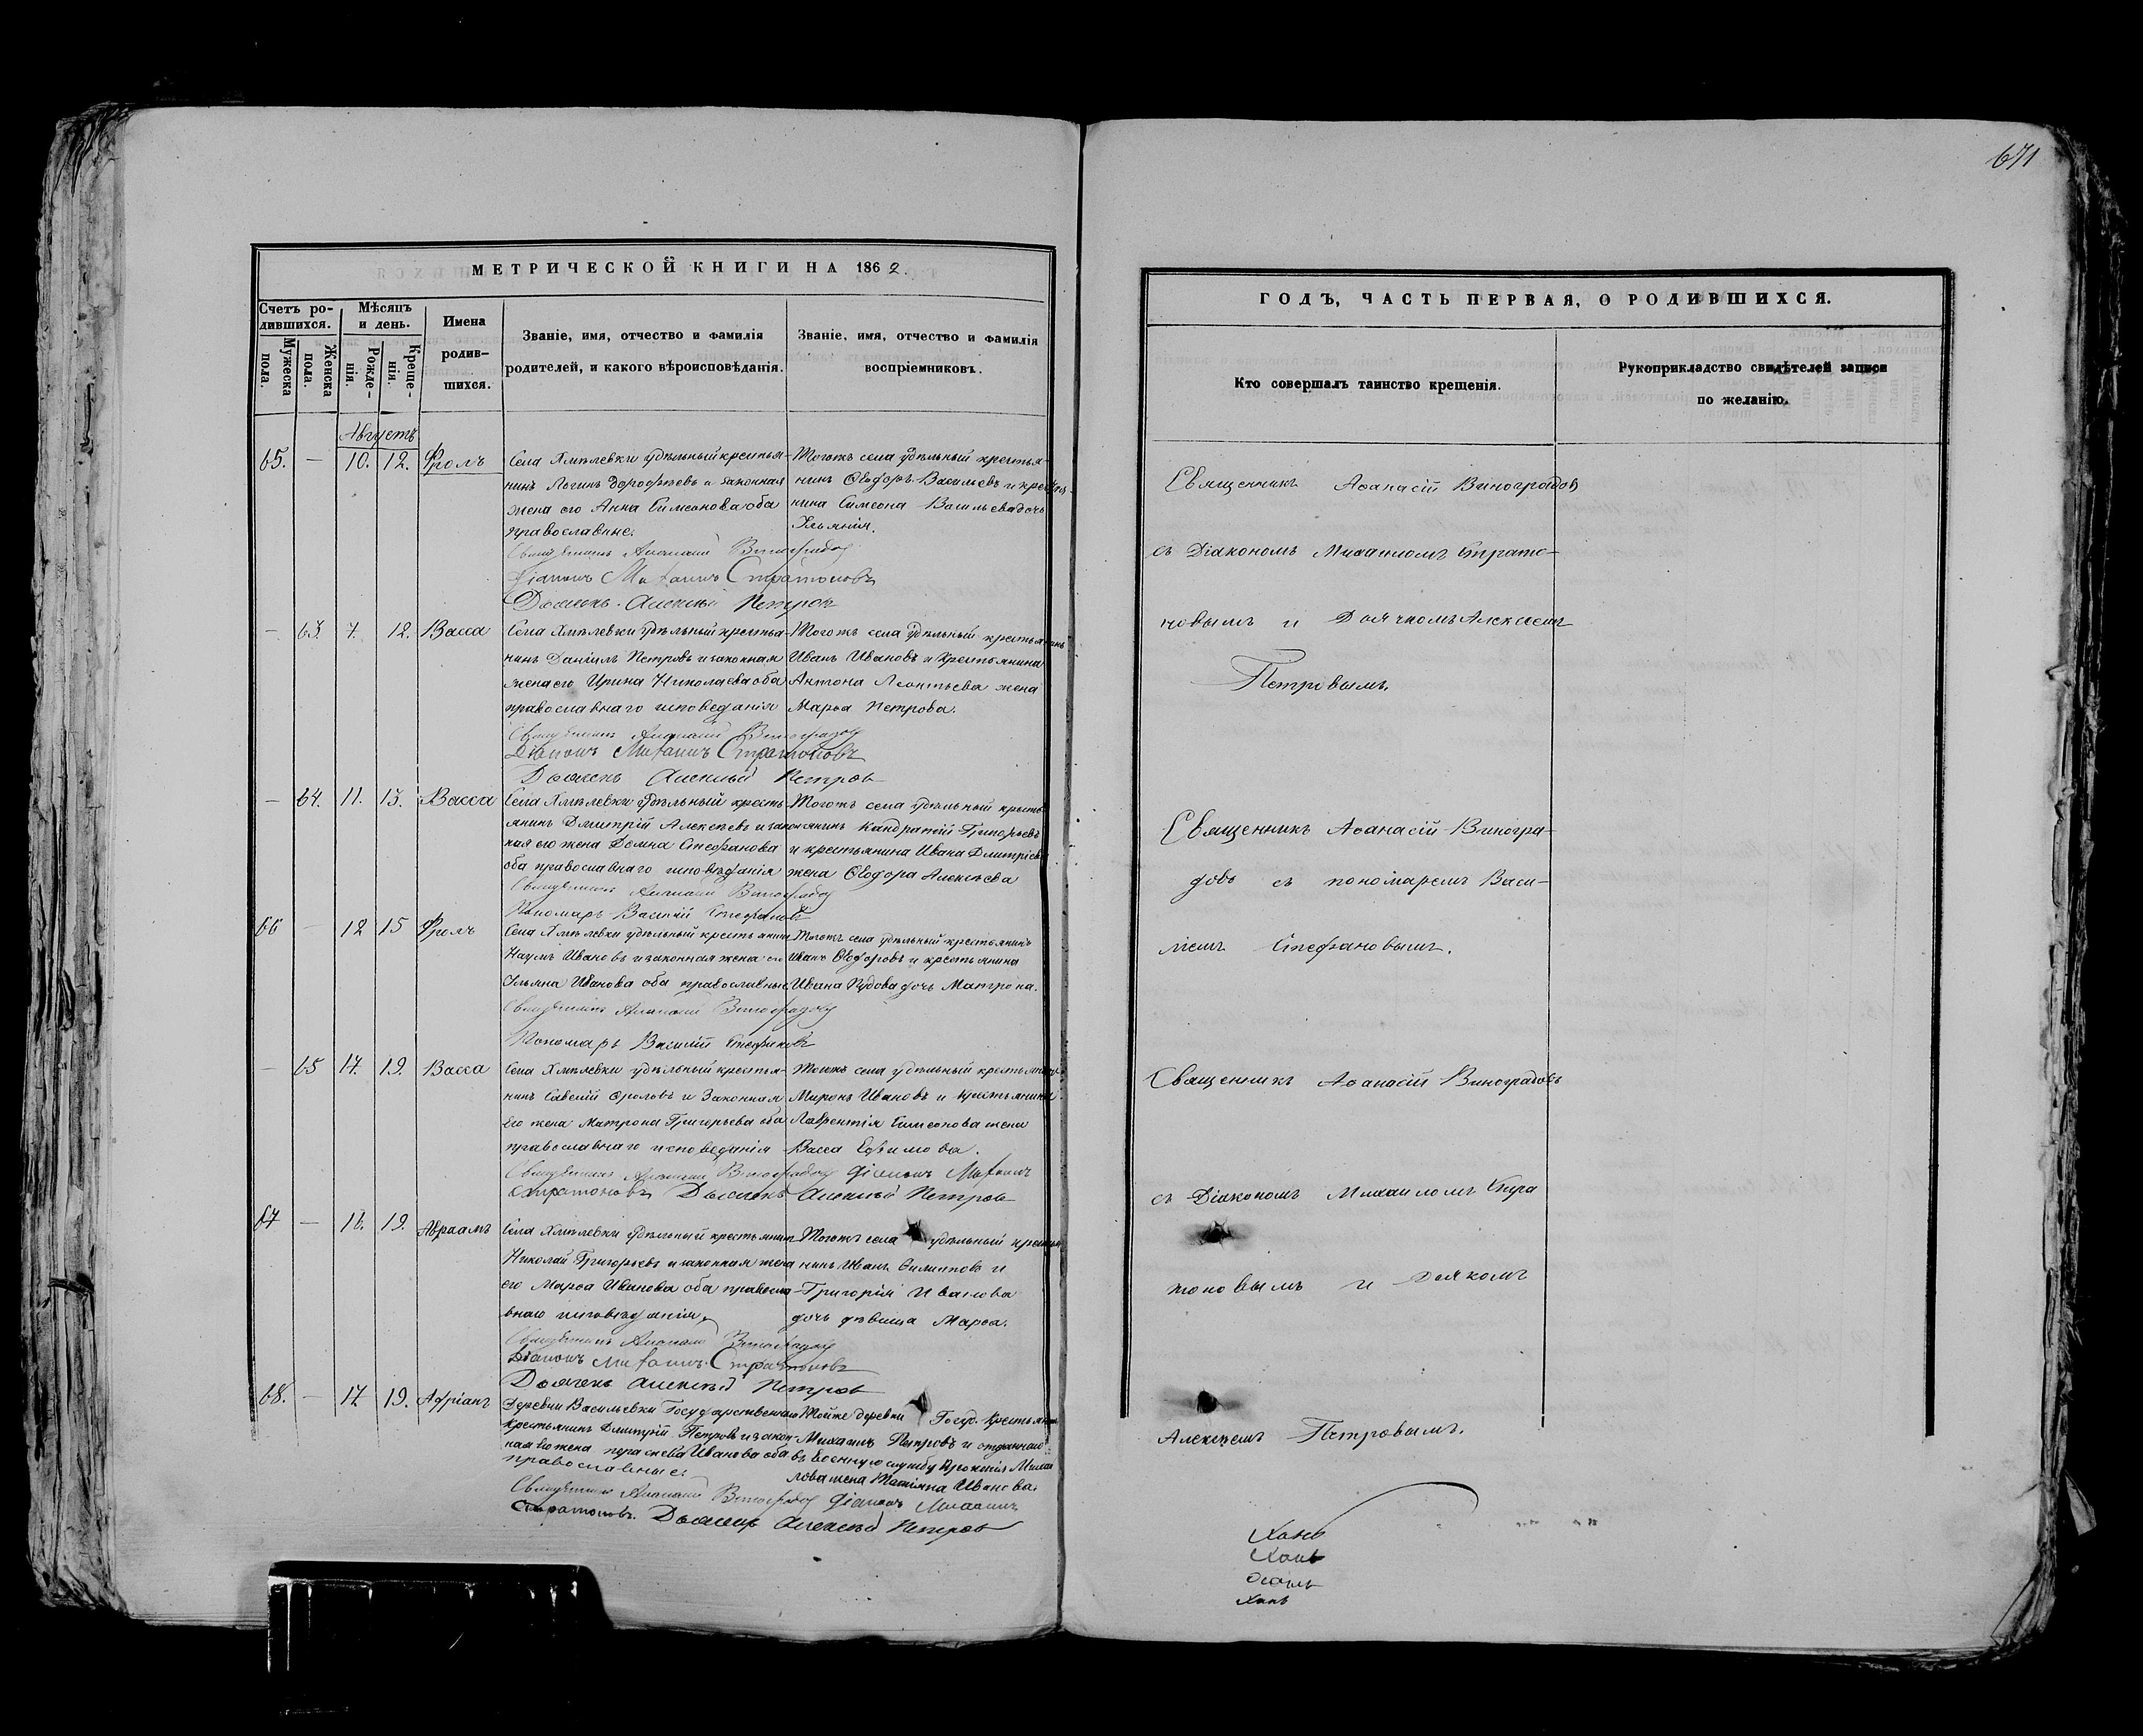 671
МЕТРИЧЕСКОЙ КНИГИ НА 1862.
Счетъ ро-
дившихся.
Мужеска
пола.
Женска
пола.
Мѣсяцъ
и день.
Рожде-
нія.
Креще-
нія.
Имена
родив-
шихся.
Званіе, имя, отчество и фамилія
родителей, и какого вѣроисповѣданія.
Званіе, имя, отчество и фамилія
воспріемниковъ.
Августъ
65. — 10. 12. Фролъ
Села Хмѣлевки удѣльный крестья-
нинъ Логинъ Дорофѣевъ и законная
жена его Анна Симеонова оба
православные.
Тогожъ села удѣльный крестья-
нинъ Ѳеодоръ Васильевъ и крестья-
нина Симеона Васильева дочь
Ульянія.
Священникъ Аѳанасій Виноградовъ
Діаконъ Михаилъ Стратоновъ
Дьячекъ Алексѣй Петровъ
— 63. 7. 12. Васса
Села Хмѣлевки удѣльный крестья-
нинъ Даніилъ Петровъ и законная
жена его Ирина Николаева оба
православнаго исповеданія
Тогожъ села удѣльный крестьянинъ
Иванъ Ивановъ и крестьянина
Антона Леонтьева жена
Марѳа Петрова.
Священникъ Аѳанасій Виноградовъ
Діаконъ Михаилъ Стратоновъ
Дьячекъ Алексѣй Петровъ
— 64. 11. 13. Васса
Села Хмѣлевки удѣльный кресть-
янинъ Дмитрій Алексѣевъ и закон-
ная его жена Домна Стефанова
оба православнаго исповѣданія
Тогожъ села удѣльный кресть-
янинъ Кандратій Григорьевъ
и крестьянина Ивана Дмитріева
жена Ѳеодора Алексѣева
Священникъ Аѳанасій Виноградовъ
Пономарь Василій Стефановъ
66 — 12 15 Фролъ
Села Хмѣлевки удѣльный крестьянинъ
Наумъ Ивановъ и законная жена его
Ульяна Иванова оба православные
Тогожъ села удѣльный крестьянинъ
Иванъ Ѳеодоровъ и крестьянина
Ивана Пудова дочь Матрона.
Священникъ Аѳанасій Виноградовъ
Пономарь Василій Стефановъ
— 65 17. 19. Васса
Села Хмѣлевки удѣльный крестья-
нинъ Савелій Фроловъ и Законная
его жена Матрона Григорьева оба
православнаго исповеданія
Тогожъ села удѣльный крестьянинъ
Миронъ Ивановъ и крестьянина
Лаврентія Симеонова жена
Васса Ефимова.
Священникъ Аѳанасій Виноградовъ Діаконъ Михаилъ
Стратоновъ Дьячекъ Алексѣй Петровъ
67 — 16. 19. Авраамъ
Села Хмѣлевки удѣльный крестьянинъ
Николай Григорьевъ и законная жена
его Марѳа Иванова оба правосла-
внаго исповѣданія
Тогожъ села удѣльный крестья-
нинъ Иванъ Филиповъ и
Григорія Иванова
дочь дѣвица Марѳа.
Священникъ Аѳанасій Виноградовъ
Діаконъ Михаилъ Стратоновъ
Дьячекъ Алексѣй Петровъ
68. — 17 19. Адріанъ
Деревни Васильевки Государственный
крестьянинъ Дмитрій Петровъ и закон-
ная его жена Иванова оба
православные.
Тойже деревни Госуд. крестьянинъ
Михаилъ Петровъ и отданнаго
въ военную службу Прокопія Михаи-
лова жена Татіяна Иванова.
Священникъ Аѳанасій Виноградовъ Діаконъ Михаилъ
Стратоновъ. Дьячекъ Алексѣй Петровъ
ГОДЪ, ЧАСТЬ ПЕРВАЯ, О РОДИВШИХСЯ.
Кто совершалъ таинство крещенія.
Рукоприкладство свидѣтелей записи
по желанію.
Священникъ Аѳанасій Виноградовъ
съ Діакономъ Михаиломъ Страто-
новымъ и Дьячкомъ Алексѣемъ
Петровымъ.
Священникъ Аѳанасій Виногра-
довъ съ пономаремъ Васи-
ліемъ Стефановымъ.
Священникъ Аѳанасій Виноградовъ
съ Діакономъ Михаиломъ Стра
тоновымъ и Дьякомъ
Алексѣемъ Петровымъ.